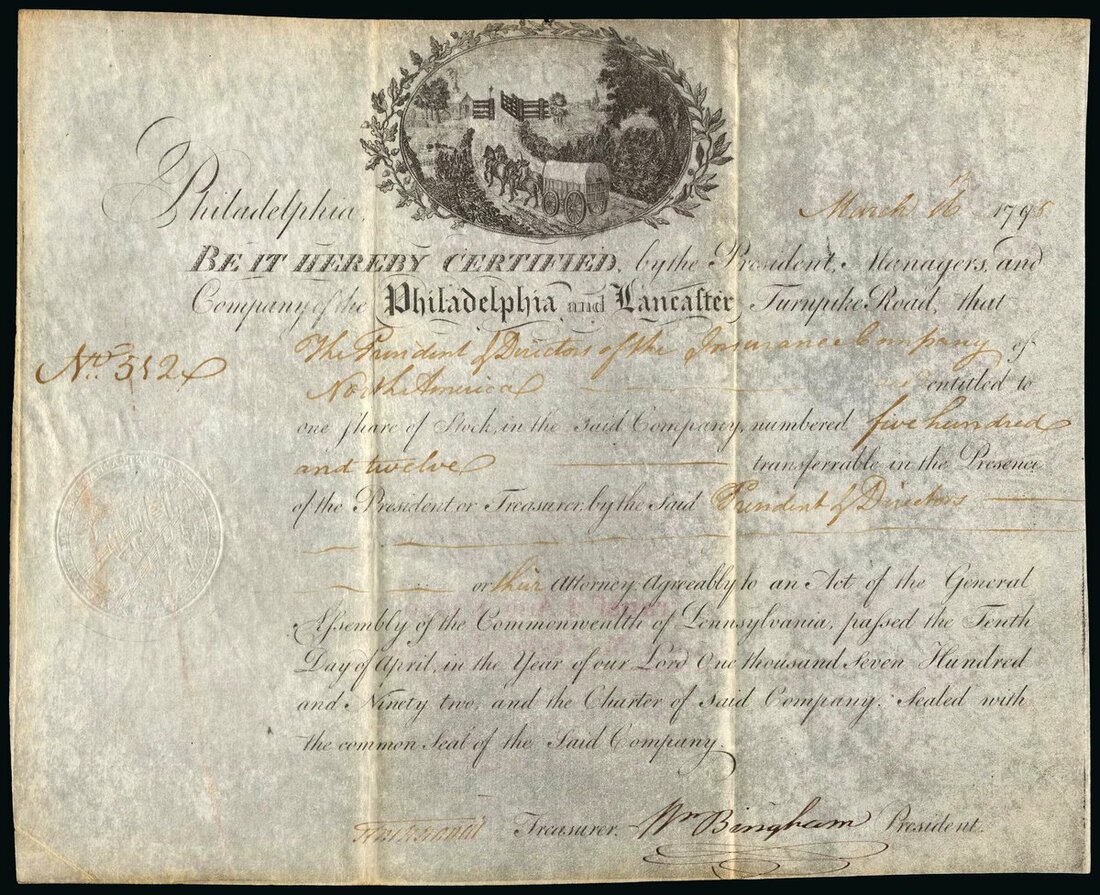 Philadelphia, March 16th 1795
BE IT HEREBY CERTIFIED, by the President, Managers, and
Company of the Philadelphia and Lancaster Turnpike Road, that
No. 512 The President & Directors of the Insurance Company of
North America entitled to
one share of Stock, in the said Company, numbered five hundred
and twelve transferrable in the Presence
of the President or Treasurer, by the said President & Directors
or their Attorney Agreeably to an Act of the General
Assembly of the Commonwealth of Pennsylvania, passed the Tenth
Day of April, in the Year of our Lord One thousand Seven Hundred
and Ninety two, and the Charter of said Company. Sealed with
the common Seal of the Said Company.
Treasurer. Wm Bingham President.